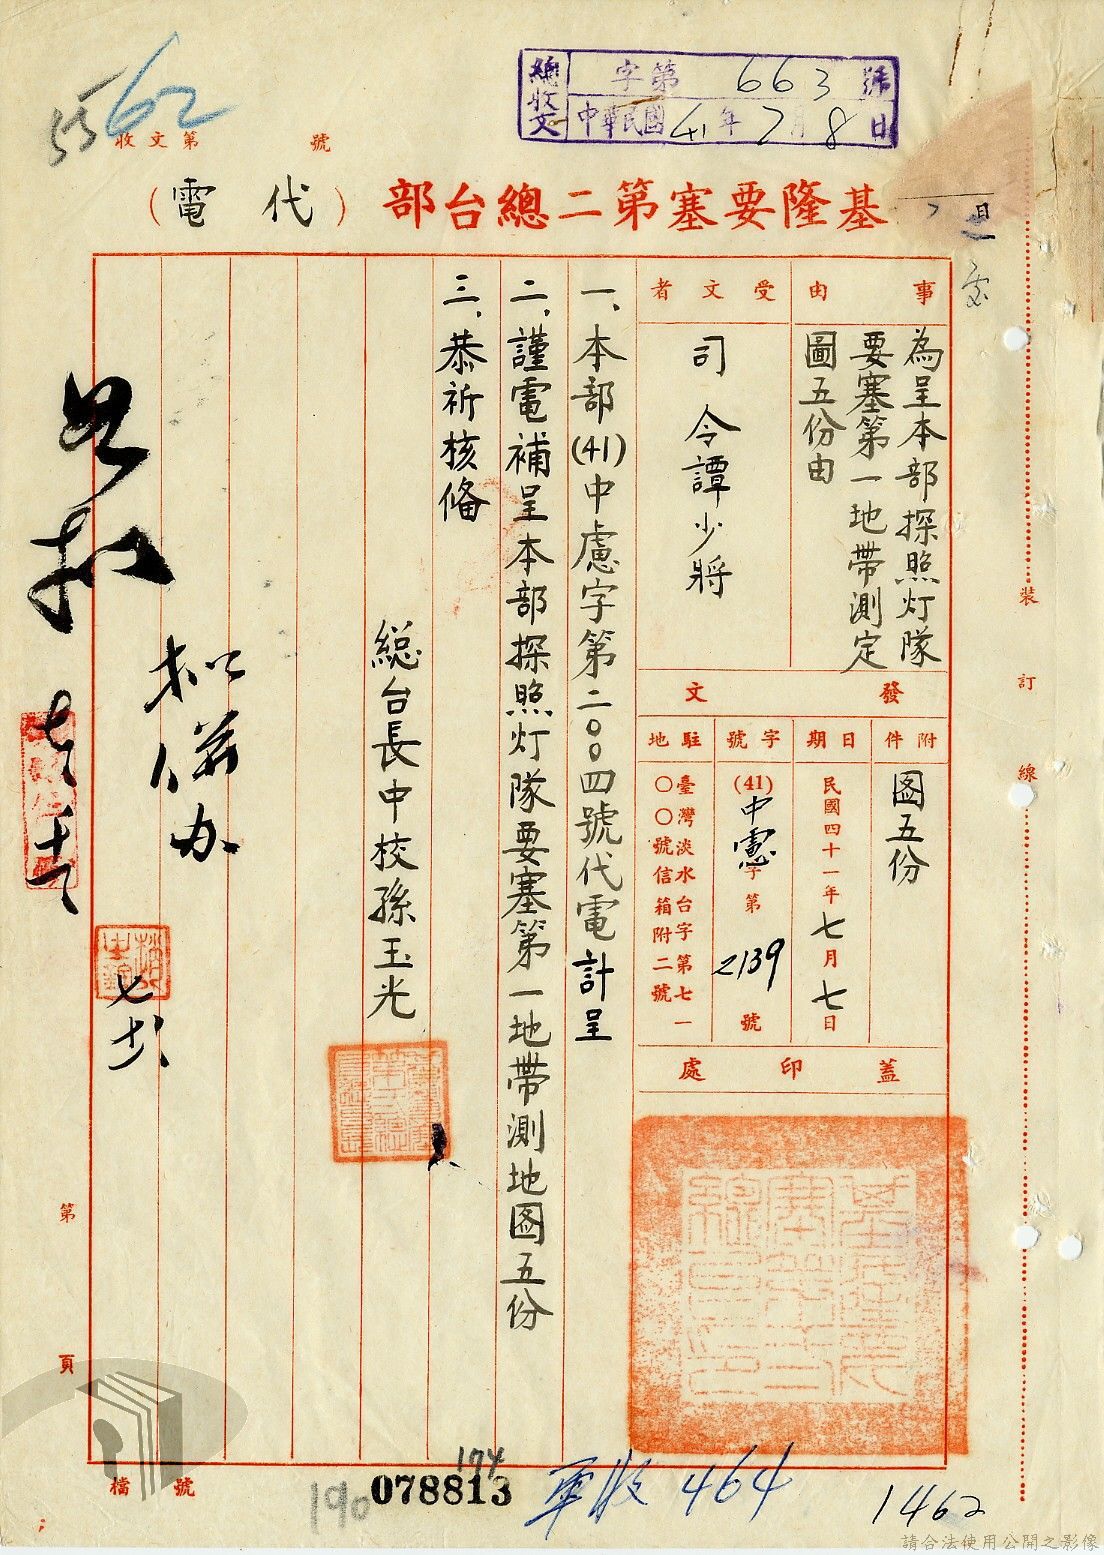 總收文 字第663號
中華民國41年7月8日
5562
收文第 號
基隆要塞第二總台部(代電)
事由
為呈本部探照灯隊
要塞第一地帶測定
圖五份由
受文者
司令譚少將
發文
附件
图五份
日期
民國四十一年七月七日
字號
(41)中憲字第2139號
駐地
臺灣淡水台字第七一
〇〇號信箱附二號
蓋印處
一、本部(41)中慮字第二〇〇四號代電計呈
二、謹電補呈本部探照灯隊要塞第一地帶測地图五份
三、恭祈核俻
総台長中校孫玉光
裝訂線
第 頁
檔 號
190
174
078813
軍收 464
1462
請合法使用公開之影像